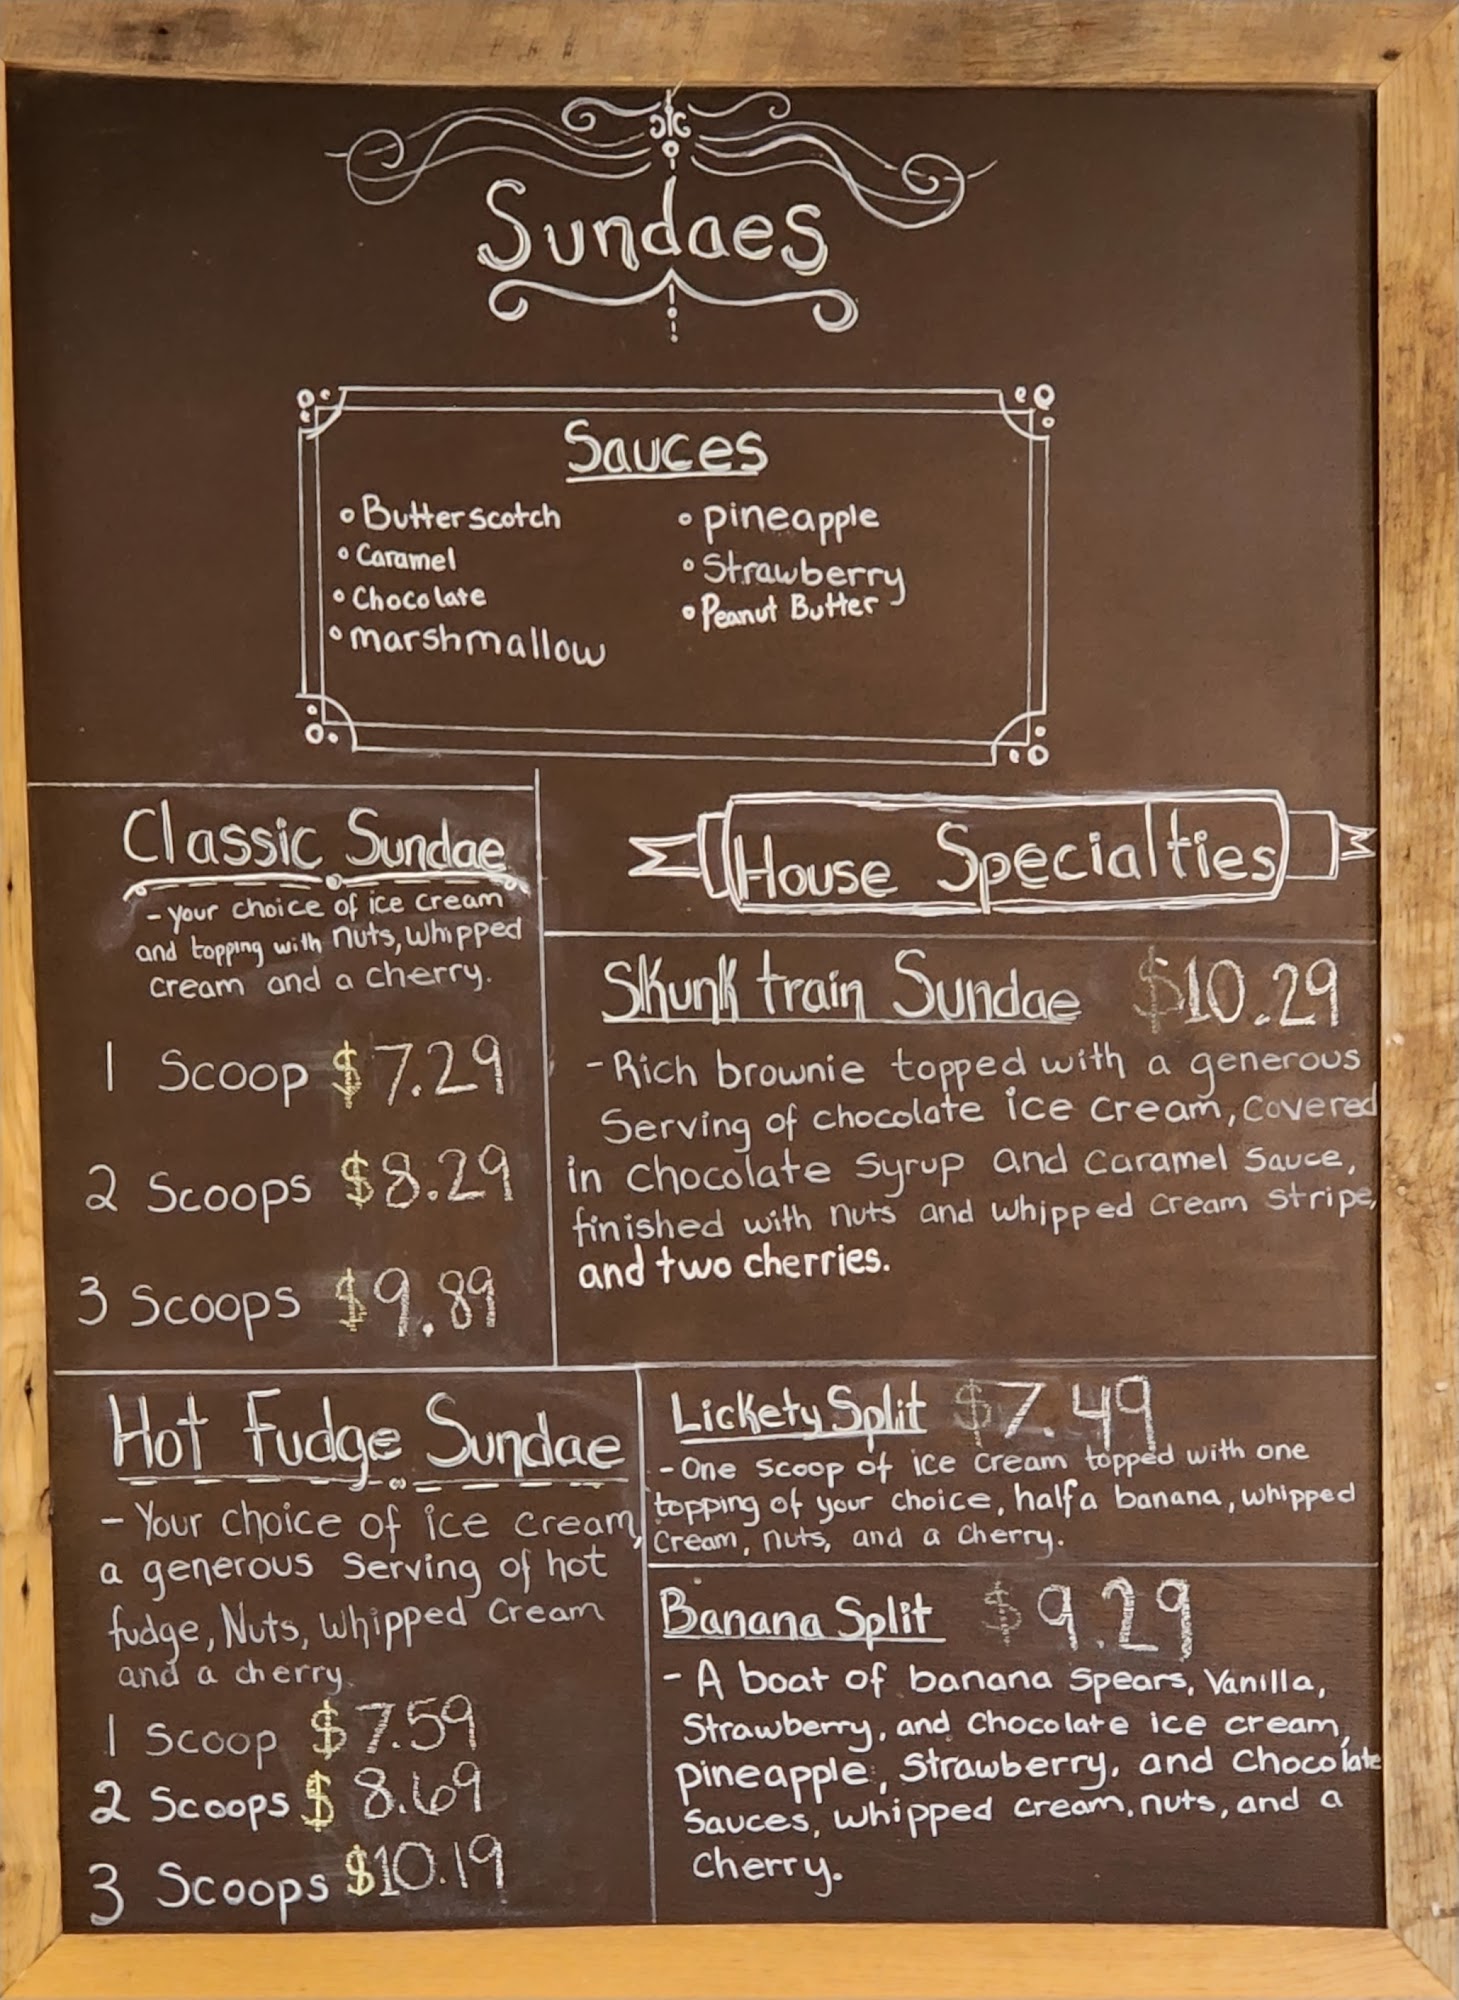 Sundaes
Sauces
Butterscotch
Caramel
Chocolate
marshmallow
pineapple
Strawberry
Peanut Butter
Classic Sundae
- your choice of ice cream
and topping with nuts, whipped
cream and a cherry.
1 Scoop $7.29
2 Scoops $8.29
3 Scoops $9.89
House Specialties
Skunk train Sundae $10.29
- Rich brownie topped with a generous
Serving of chocolate ice cream, covered
in chocolate syrup and caramel sauce,
finished with nuts and whipped cream stripe,
and two cherries.
Hot Fudge Sundae
- Your choice of ice cream,
a generous serving of hot
fudge, Nuts, whipped cream
and a cherry
1 Scoop $7.59
2 Scoops $8.69
3 Scoops $10.19
Lickety Split $7.49
- One scoop of ice cream topped with one
topping of your choice, half a banana, whipped
cream, nuts, and a cherry.
Banana Split $9.29
- A boat of banana spears, Vanilla,
Strawberry, and Chocolate ice cream,
pineapple, Strawberry, and Chocolate
Sauces, whipped cream, nuts, and a
cherry.